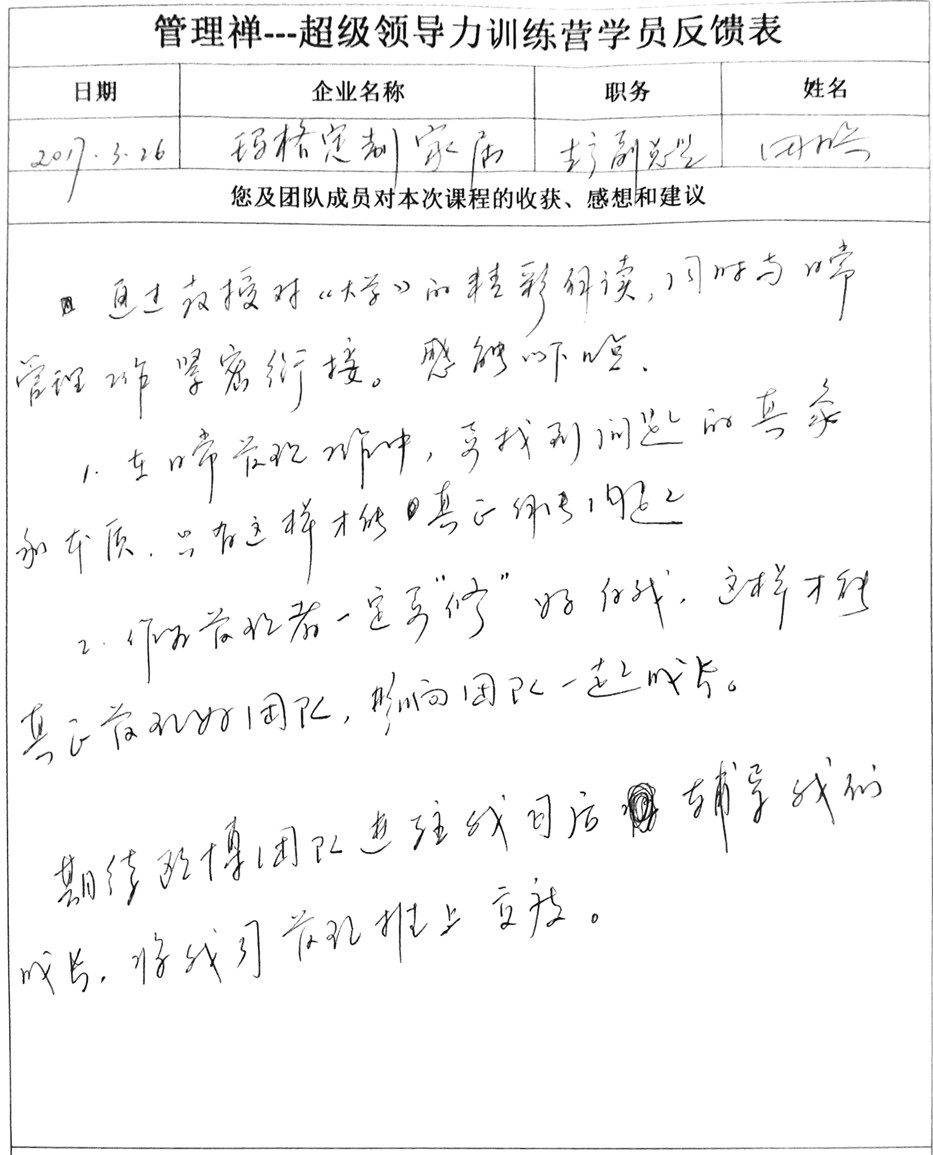 管理禅---超级领导力训练营学员反馈表
日期 企业名称 职务 姓名
2017.3.26 玛格定制家居 生产副总 田
您及团队成员对本次课程的收获、感想和建议
通过教授对《大学》的精彩解读,同时与日常
管理工作紧密衔接。感触以下几点.
1. 在日常管理工作中,要找到问题的真象
和本质.只有这样才能真正解决问题
2. 作为管理者一定要"修"好自我.这样才能
真正管理好团队,影响团队一起成长。
期待欧博团队进驻我司后辅导我们
成长.将我司管理推上高度。